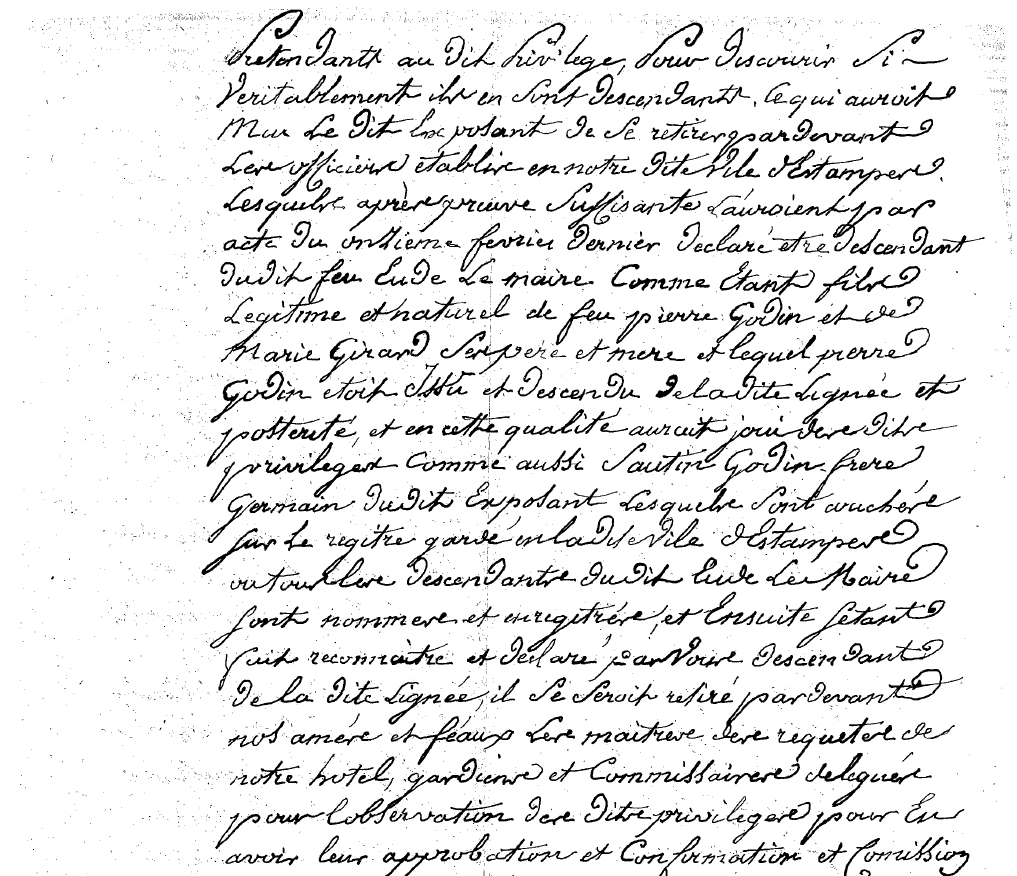 pretendants au dit privilege, pour descouvrir si
veritablement ils en sont descendants, ce qui auroit
Mu Le dit Exposant de se retirer pardevant
Les officiers etablis en notre dite Vile d'Estampes.
Lesquels après preuve suffisante L'auroient par
acte du onzieme fevrier dernier declaré etre descendant
dudit feu Eude Le maire Comme Etant fils
Legitime et naturel de feu pierre Godin et de
Marie Girard Ses pere et mere et lequel pierre
Godin etoit Issu et descendu de la dite Lignée et
posterité, et en cette qualité auroit joui des dits
privileges Comme aussi Sautin Godin frere
Germain dudit Exposant Lesquels sont couchés
sur Le regitre gardé en la dite Vile d'Estampes
ou tous les descendants dudit Eude Le Maire
sont nommes et enregitrés, et Ensuite s'etant
fait reconnaitre et declaré par vous descendant
de la dite Lignée, il se seroit retiré pardevant
nos amés et féaux Les maitres des requetes de
notre hotel, gardiens et Commissaires delegués
pour l'observation des dits privileges pour En
avoir leur approbation et Confirmation et Comission